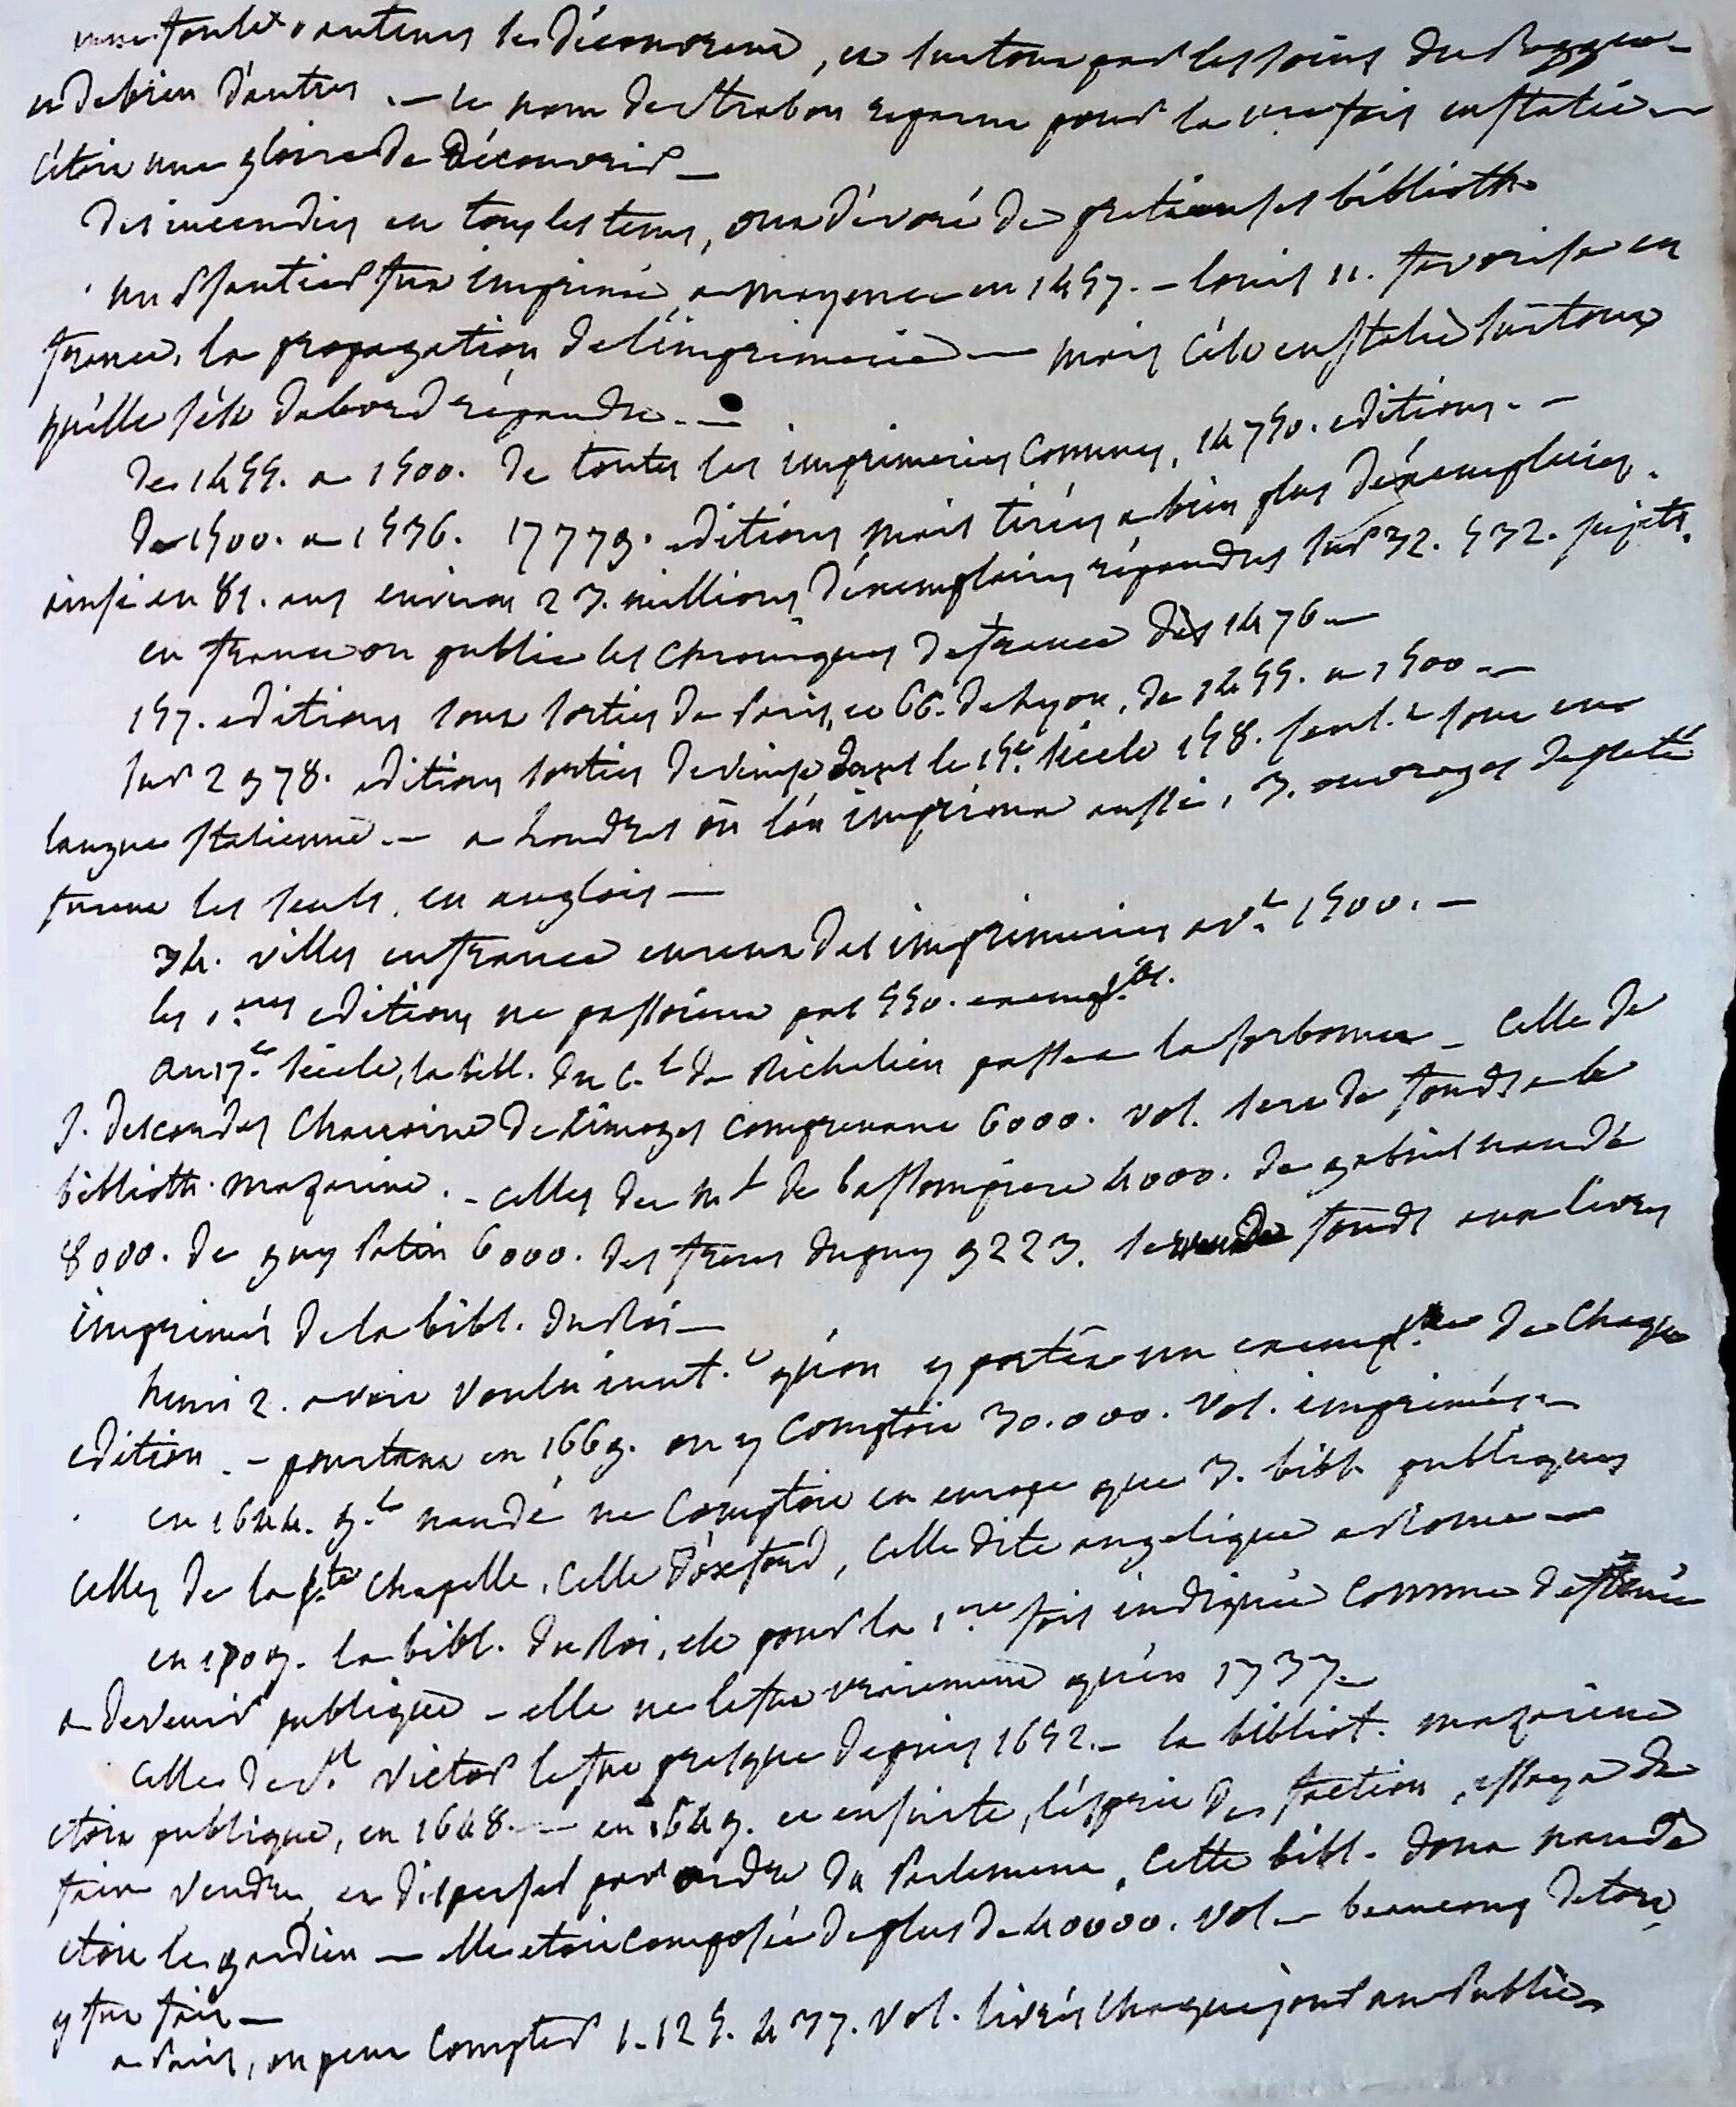 une foule d'auteurs se découvrent, et surtout par les soins du Pogge
et de bien d'autres. — le nom de Strabon reparut pour la 1re fois en Italie —
c'étoit une gloire de découvrir —
des incendies en tous les tems, ont dévoré de pretieuses biblioth.
un Psautier fut imprimé, a mayence en 1457. — louis 11. favorisa en
france, la propagation de l'imprimerie — mais c'est en Italie surtout
qu'elle s'est dabord répandue. —
De 1455. a 1500. de toutes les imprimeries connues, 14750. editions. —
De 1500. a 1536. 17779. editions mais tirées a bien plus d'exemplaires.
ainsi en 81. ans environ 23. millions d'exemplaires répandus sur 32. 532. sujets.
en france on publia les Chroniques de france dès 1476 —
157. editions sont sorties de Paris, et 66. de Lyon, de 1455. a 1500 —
sur 2978. editions sorties de venise, dans le 15e. siècle 158. seul.t sont en
langue Italienne. — a Londres où l'on imprima aussi, 3. ouvrages de piété
furent les seuls, en anglois —
34. villes en france eurent des imprimeries av.t 1500. —
les 1.eres editions ne passoient pas 550. exempl.res.
au 17.e siècle, la bibl. du C.l de Richelieu passa a la sorbonne — celle de
J. descordes Chanoine de Limoges comprenant 6000. vol. sert de fonds a la
biblioth. mazarine. — celles du M.l de bassompiere 4000. de gabriel naudé
8000. de guy Patin 6000. des freres dupuy 9223. fonds aux livres
imprimés de la bibl. du Roi —
henri 2. avoit voulu inut.t qu'on y portât un exempl.re de Chaque
edition. — pourtant en 1669. on y comptoit 30.000. vol. imprimés —
en 1644. g.l naudé ne comptoit en europe que 3. bibl. publiques
celles de la s.te Chapelle, celle d'oxford, celle dite angelique a Rome —
en 1709. la bibl. du Roi, est pour la 1.ere fois indiquée comme destinée
a devenir publique — elle ne le fut vraiement qu'en 1737 —
celle de S.t Victor le fut presque depuis 1652. — la bibliot. mazarine
etoit publique, en 1648. — en 1649. et ensuite, l'esprit de faction, essaya de
faire vendre, et disperser par ordre du Parlement, cette bibl. dont naudé
etoit le gardien — elle etoit composée de plus de 40000. vol — beaucoup de tort
y fut fait —
a Paris, on peut compter 1.125. 437. vol. livrés Chaque jour au Public —